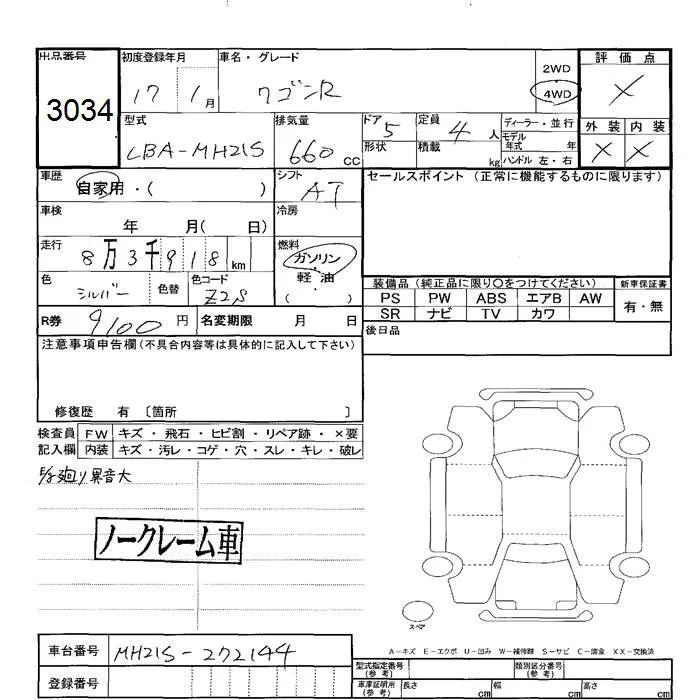 出品番号 初度登録年月 車名・グレード 評価点
3034 17 1月 ワゴンR 2WD 4WD X
型式 排気量 ドア 5 定員 4人 ディーラー・並行 外装 内装
LBA-MH21S 660cc 形状 積載 kg モデル年式 年 ハンドル 左・右 X X
車歴 自家用・( ) シフト AT セールスポイント (正常に機能するものに限ります)
車検 年 月( 日) 冷房
走行 8万3千918km 燃料 ガソリン・軽油 ( )
色 シルバー 色替 色コード Z2S
装備品 (純正品に限り○をつけてください) 新車保証書
PS PW ABS エアB AW 有・無
SR ナビ TV カワ
R券 9100円 名変期限 月 日 後日品
注意事項申告欄 (不具合内容等は具体的に記入して下さい)
修復歴 有 〔箇所 〕
検査員 FW キズ・飛石・ヒビ割・リペア跡・×要
記入欄 内装 キズ・汚レ・コゲ・穴・スレ・キレ・破レ
廻り異音大
ノークレーム車
スペア
A-キズ E-エクボ U-凹み W-補修跡 S-サビ C-腐食 XX-交換済
車台番号 MH21S-272144
型式指定番号 (参考) 類別区分番号 (参考)
登録番号 車庫証明用 (参考) 長さ cm 幅 cm 高さ cm